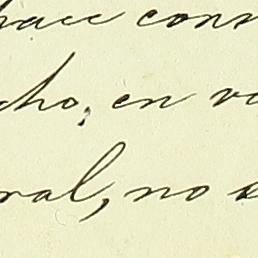 hace cons
cho; en v
ral, no